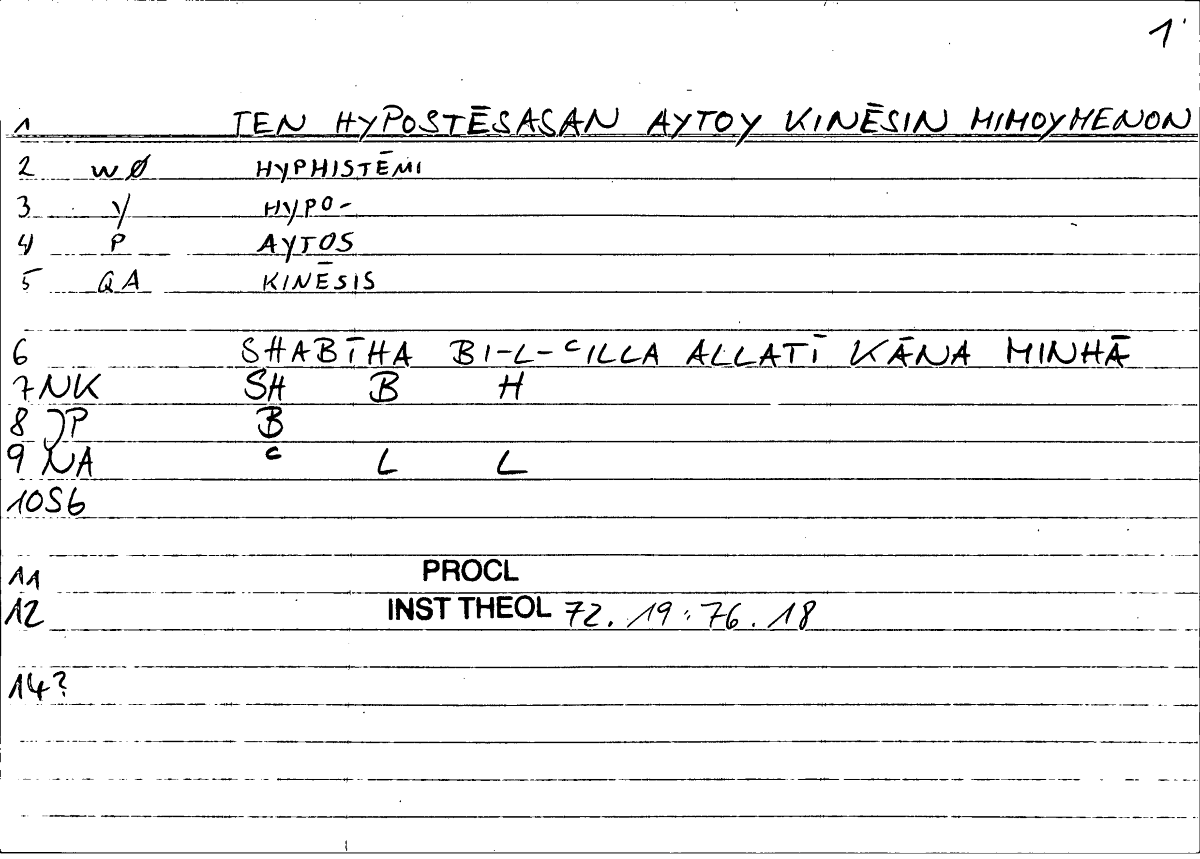 1
1 TEN HYPOSTĒSASAN AYTOY KINĒSIN MIMOYMENON
2 WØ HYPHISTĒMI
3 Y HYPO-
4 P AYTOS
5 QA KINĒSIS
6 SHABĪHA BI-L-ᶜILLA ALLATĪ KĀNA MINHĀ
7 NK SH B H
8 JP B
9 NA ᶜ L L
10 S6
11 PROCL
12 INST THEOL 72. 19 : 76. 18
14?